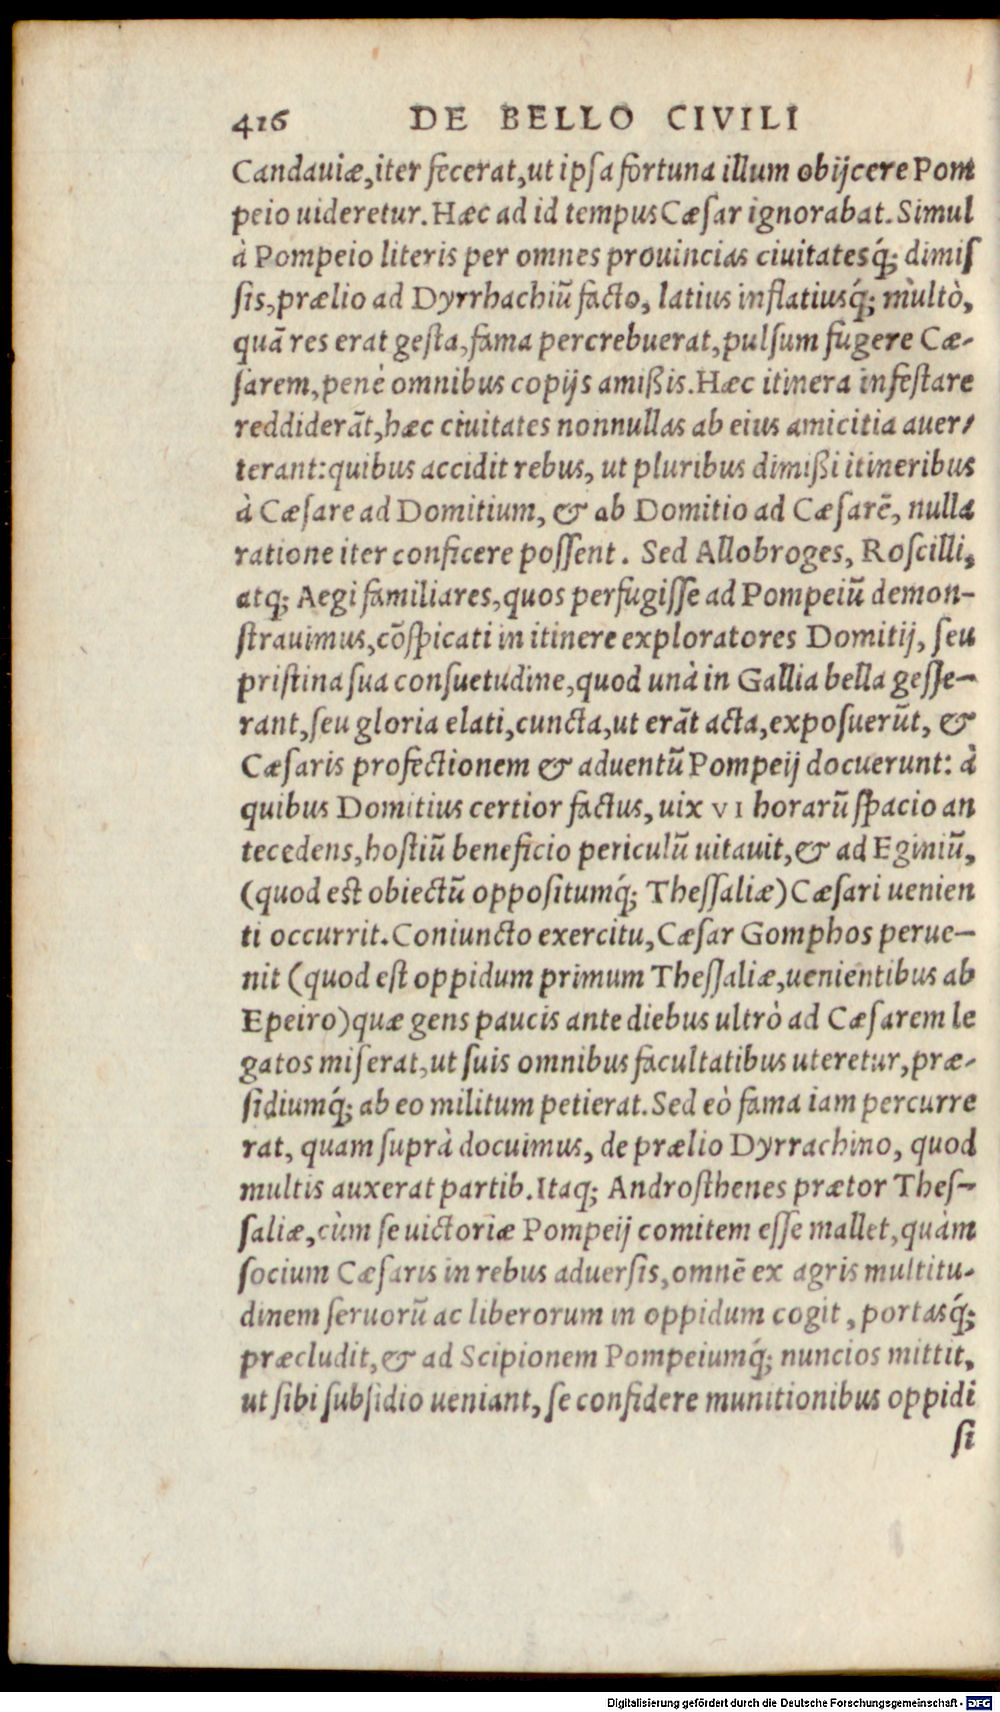 416 DE BELLO CIVILI
Candauiæ,iter fecerat,ut ipſa fortuna illum obijcere Pom
peio uideretur.Hæc ad id tempus Cæſar ignorabat.Simul
à Pompeio literis per omnes prouincias ciuitatesq́; dimiſ
ſis,prælio ad Dyrrhachiũ facto, latius inflatiusq́; multò,
quã res erat geſta,fama percrebuerat,pulſum fugere Cæ-
ſarem,penè omnibus copijs amißis.Hæc itinera infeſtare
reddiderãt,hæc ciuitates nonnullas ab eius amicitia auer-
terant:quibus accidit rebus, ut pluribus dimißi itineribus
à Cæſare ad Domitium, & ab Domitio ad Cæſarẽ, nulla
ratione iter conficere poſſent. Sed Allobroges, Roſcilli,
atq; Aegi familiares,quos perfugiſſe ad Pompeiũ demon-
ſtrauimus,cõſpicati in itinere exploratores Domitij, ſeu
priſtina ſua conſuetudine,quod unà in Gallia bella geſſe-
rant,ſeu gloria elati,cuncta,ut erãt acta,expoſuerũt, &
Cæſaris profectionem & aduentũ Pompeij docuerunt: à
quibus Domitius certior factus, uix VI horarũ ſpacio an
tecedens,hoſtiũ beneficio periculũ uitauit,& ad Eginiũ,
(quod est obiectũ oppoſitumq́; Theſſaliæ)Cæſari uenien
ti occurrit.Coniuncto exercitu,Cæſar Gomphos perue-
nit (quod eſt oppidum primum Theſſaliæ,uenientibus ab
Epeiro)quæ gens paucis ante diebus ultrò ad Cæſarem le
gatos miſerat,ut ſuis omnibus facultatibus uteretur,præ-
ſidiumq́; ab eo militum petierat.Sed eò fama iam percurre
rat, quam ſuprà docuimus, de prælio Dyrrachino, quod
multis auxerat partib.Itaq; Androſthenes prætor Theſ-
ſaliæ,cùm ſe uictoriæ Pompeij comitem eſſe mallet,quàm
ſocium Cæſaris in rebus aduerſis,omnẽ ex agris multitu-
dinem ſeruorũ ac liberorum in oppidum cogit, portasq́;
præcludit,& ad Scipionem Pompeiumq́; nuncios mittit,
ut ſibi ſubſidio ueniant, ſe confidere munitionibus oppidi
ſi
Digitalisierung gefördert durch die Deutsche Forschungsgemeinschaft - DFG